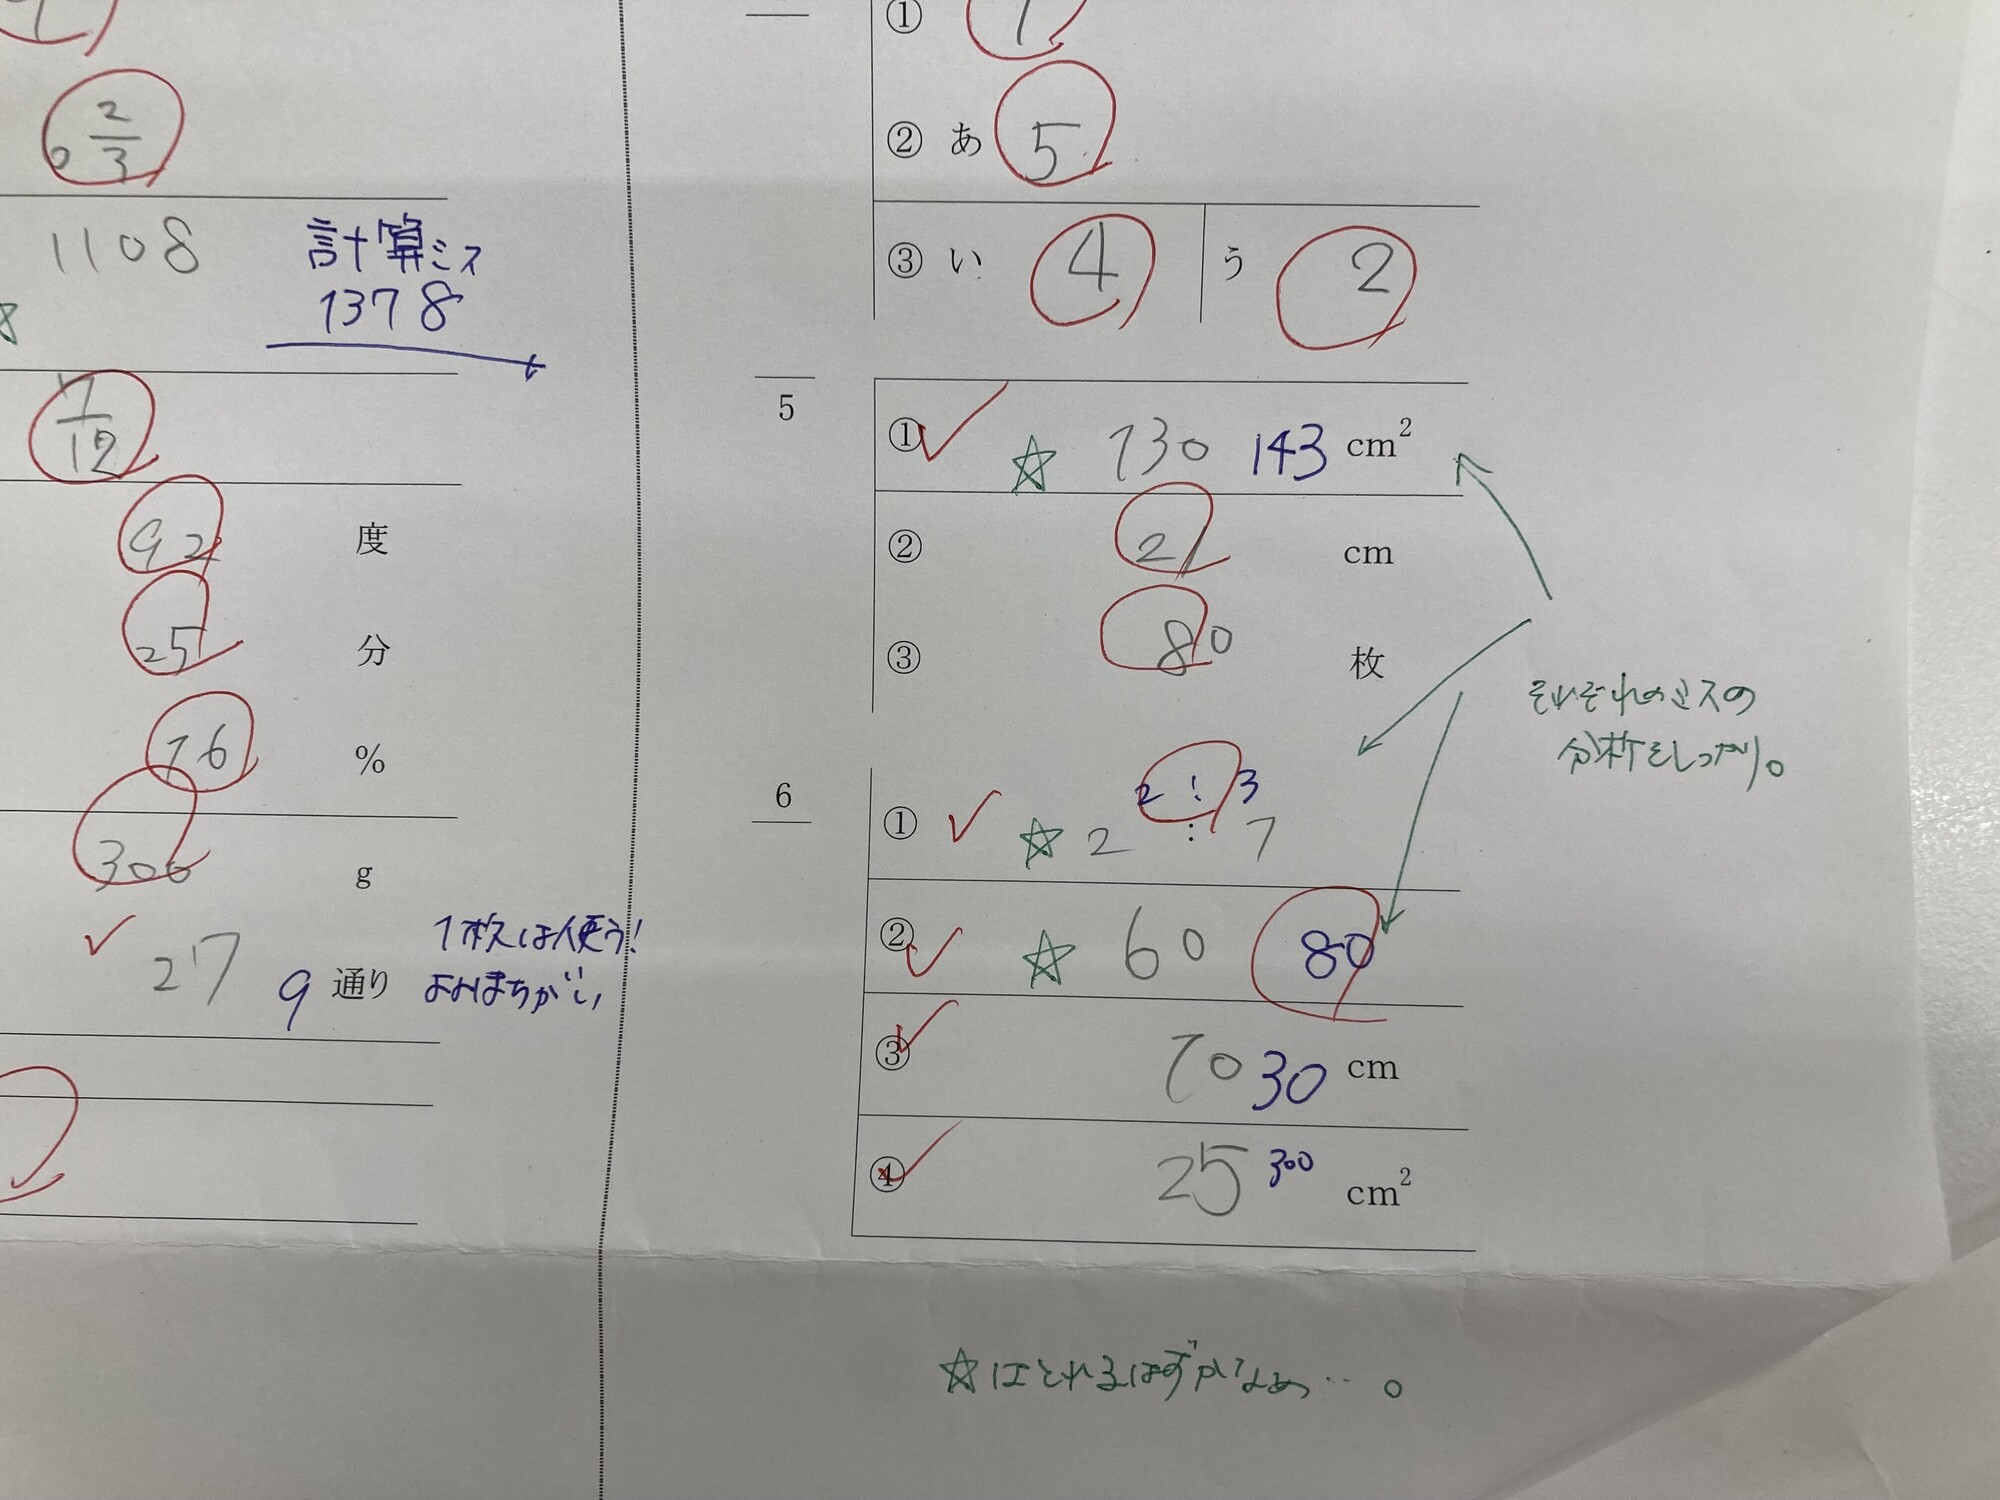 2/3
1108
計算ミス
1378
8
7/12
92 度
25 分
76 %
300 g
27 9 通り
1枚は使う!
よみまちがい
① 1
② あ 5
③ い 4 う 2
5
① ☆ 130 143 cm²
② 21 cm
③ 80 枚
それぞれのミスの
分析をしっかり。
6
2 : 3
① ☆ 2 : 7
② ☆ 60 80
③ 70 30 cm
④ 25 300 cm²
☆はとれるはずかなぁ…。